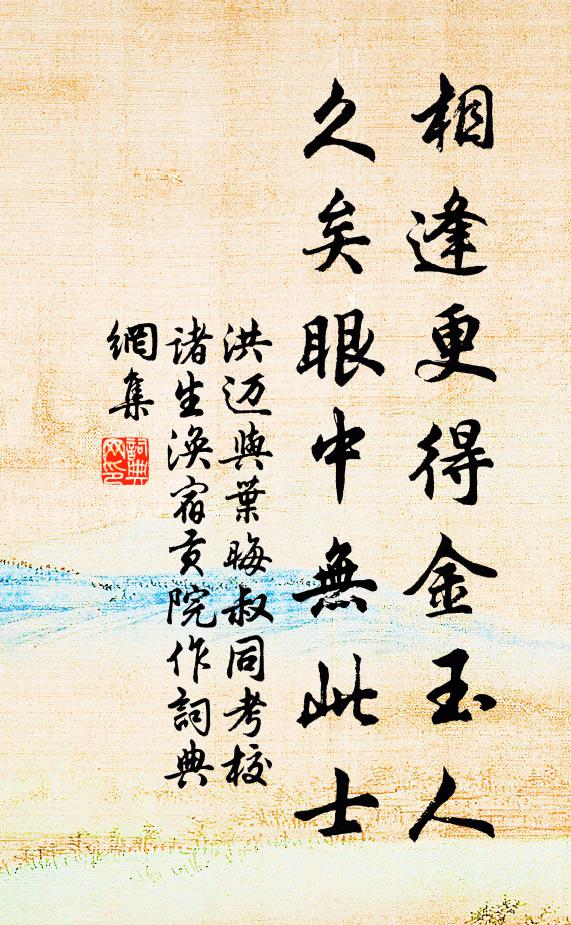 相逢更得金玉人
久矣眼中無此士
洪迈與葉晦叔同考校
諸生渙宿貢院作詞典
網集
詞典
网印